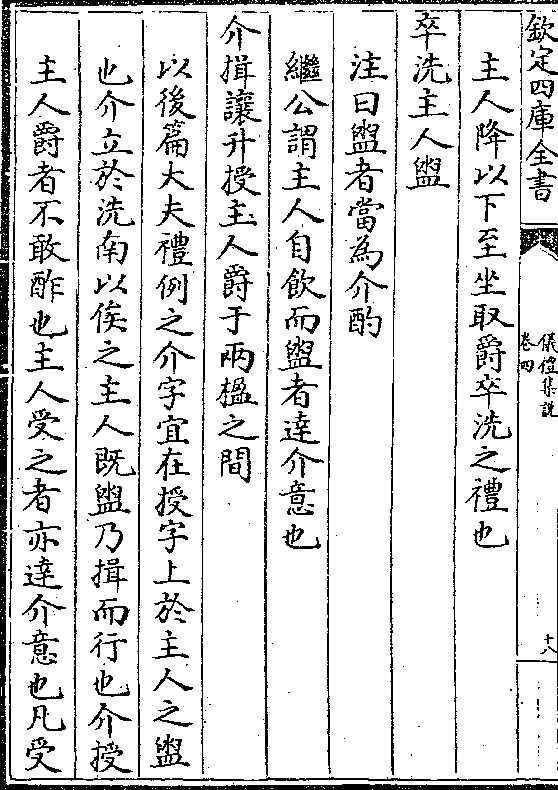 欽定四庫全書
儀禮集說
卷四
十八
主人降以下至坐取爵卒洗之禮也
卒洗主人盥
注曰盥者當為介酌
繼公謂主人自飲而盥者達介意也
介揖讓升授主人爵于兩楹之間
以後篇大夫禮例之介字宜在授字上於主人之盥
也介立於洗南以俟之主人既盥乃揖而行也介授
主人爵者不敢酢也主人受之者亦達介意也凡受